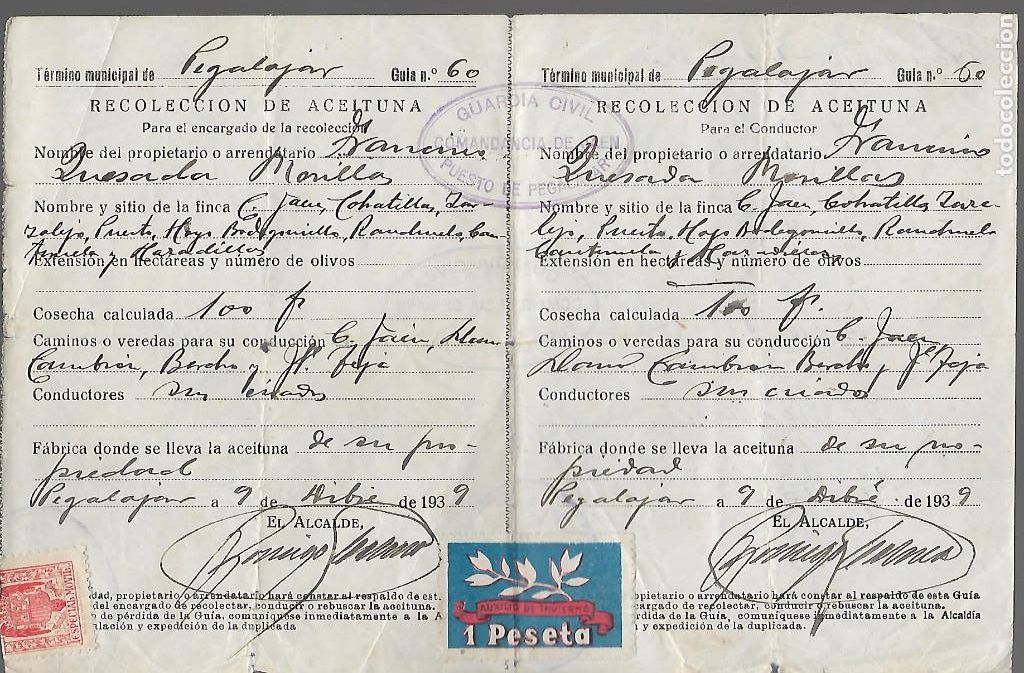 Término municipal de Pegalajar Guía n.º 60
RECOLECCION DE ACEITUNA
Para el encargado de la recolección
Nombre del propietario o arrendatario Francisco
Quesada Morillas
Nombre y sitio de la finca C. Jaen, Cohatillas, Zar-
zalejo, Puerto, Hoya Bodegonillo, Ranchuelo, Can-
y
Extensión en hectáreas y número de olivos
Cosecha calculada 100 f
Caminos o veredas para su conducción C. Jaén, Llano
Cambron, Bercho y
Conductores sus criados
Fábrica donde se lleva la aceituna de su pro-
piedad
Pegalajar a 9 de Dibre de 1939
EL ALCALDE,
dad, propietario o arrendatario hará constar al respaldo de est.
del encargado de recolectar, conducir o rebuscar la aceituna.
o de pérdida de la Guía, comuníquese inmediatamente a la A
ulación y expedición de la duplicada
ESPECIAL MOVIL
GUARDIA CIVIL
COMANDANCIA DE JAEN
PUESTO DE PEGALAJAR
AUXILIO DE INVIERNO
1 Peseta
Término municipal de Pegalajar Guía n.º 60
RECOLECCION DE ACEITUNA
Para el Conductor
Nombre del propietario o arrendatario Francisco
Quesada Morillas
Nombre y sitio de la finca C. Jaen, Cohatillas Zarza-
lejo, Puerto Hoya Bodegonillo, Ranchuelo
y
Extensión en hectáreas y número de olivos
Cosecha calculada 100 f.
Caminos o veredas para su conducción C. Jaen
Llano Cambron Bercho y
Conductores sus criados
Fábrica donde se lleva la aceituna de su pro-
piedad
Pegalajar a 9 de Dibre. de 1939
EL ALCALDE,
opietario o arrendatario hará constar al respaldo de esta Guía
cargado de recolectar, conducir o rebuscar la aceituna.
rdida de la Guía, comuníquese inmediatamente a la Alcaldía
y expedición de la duplicada
todocoleccion